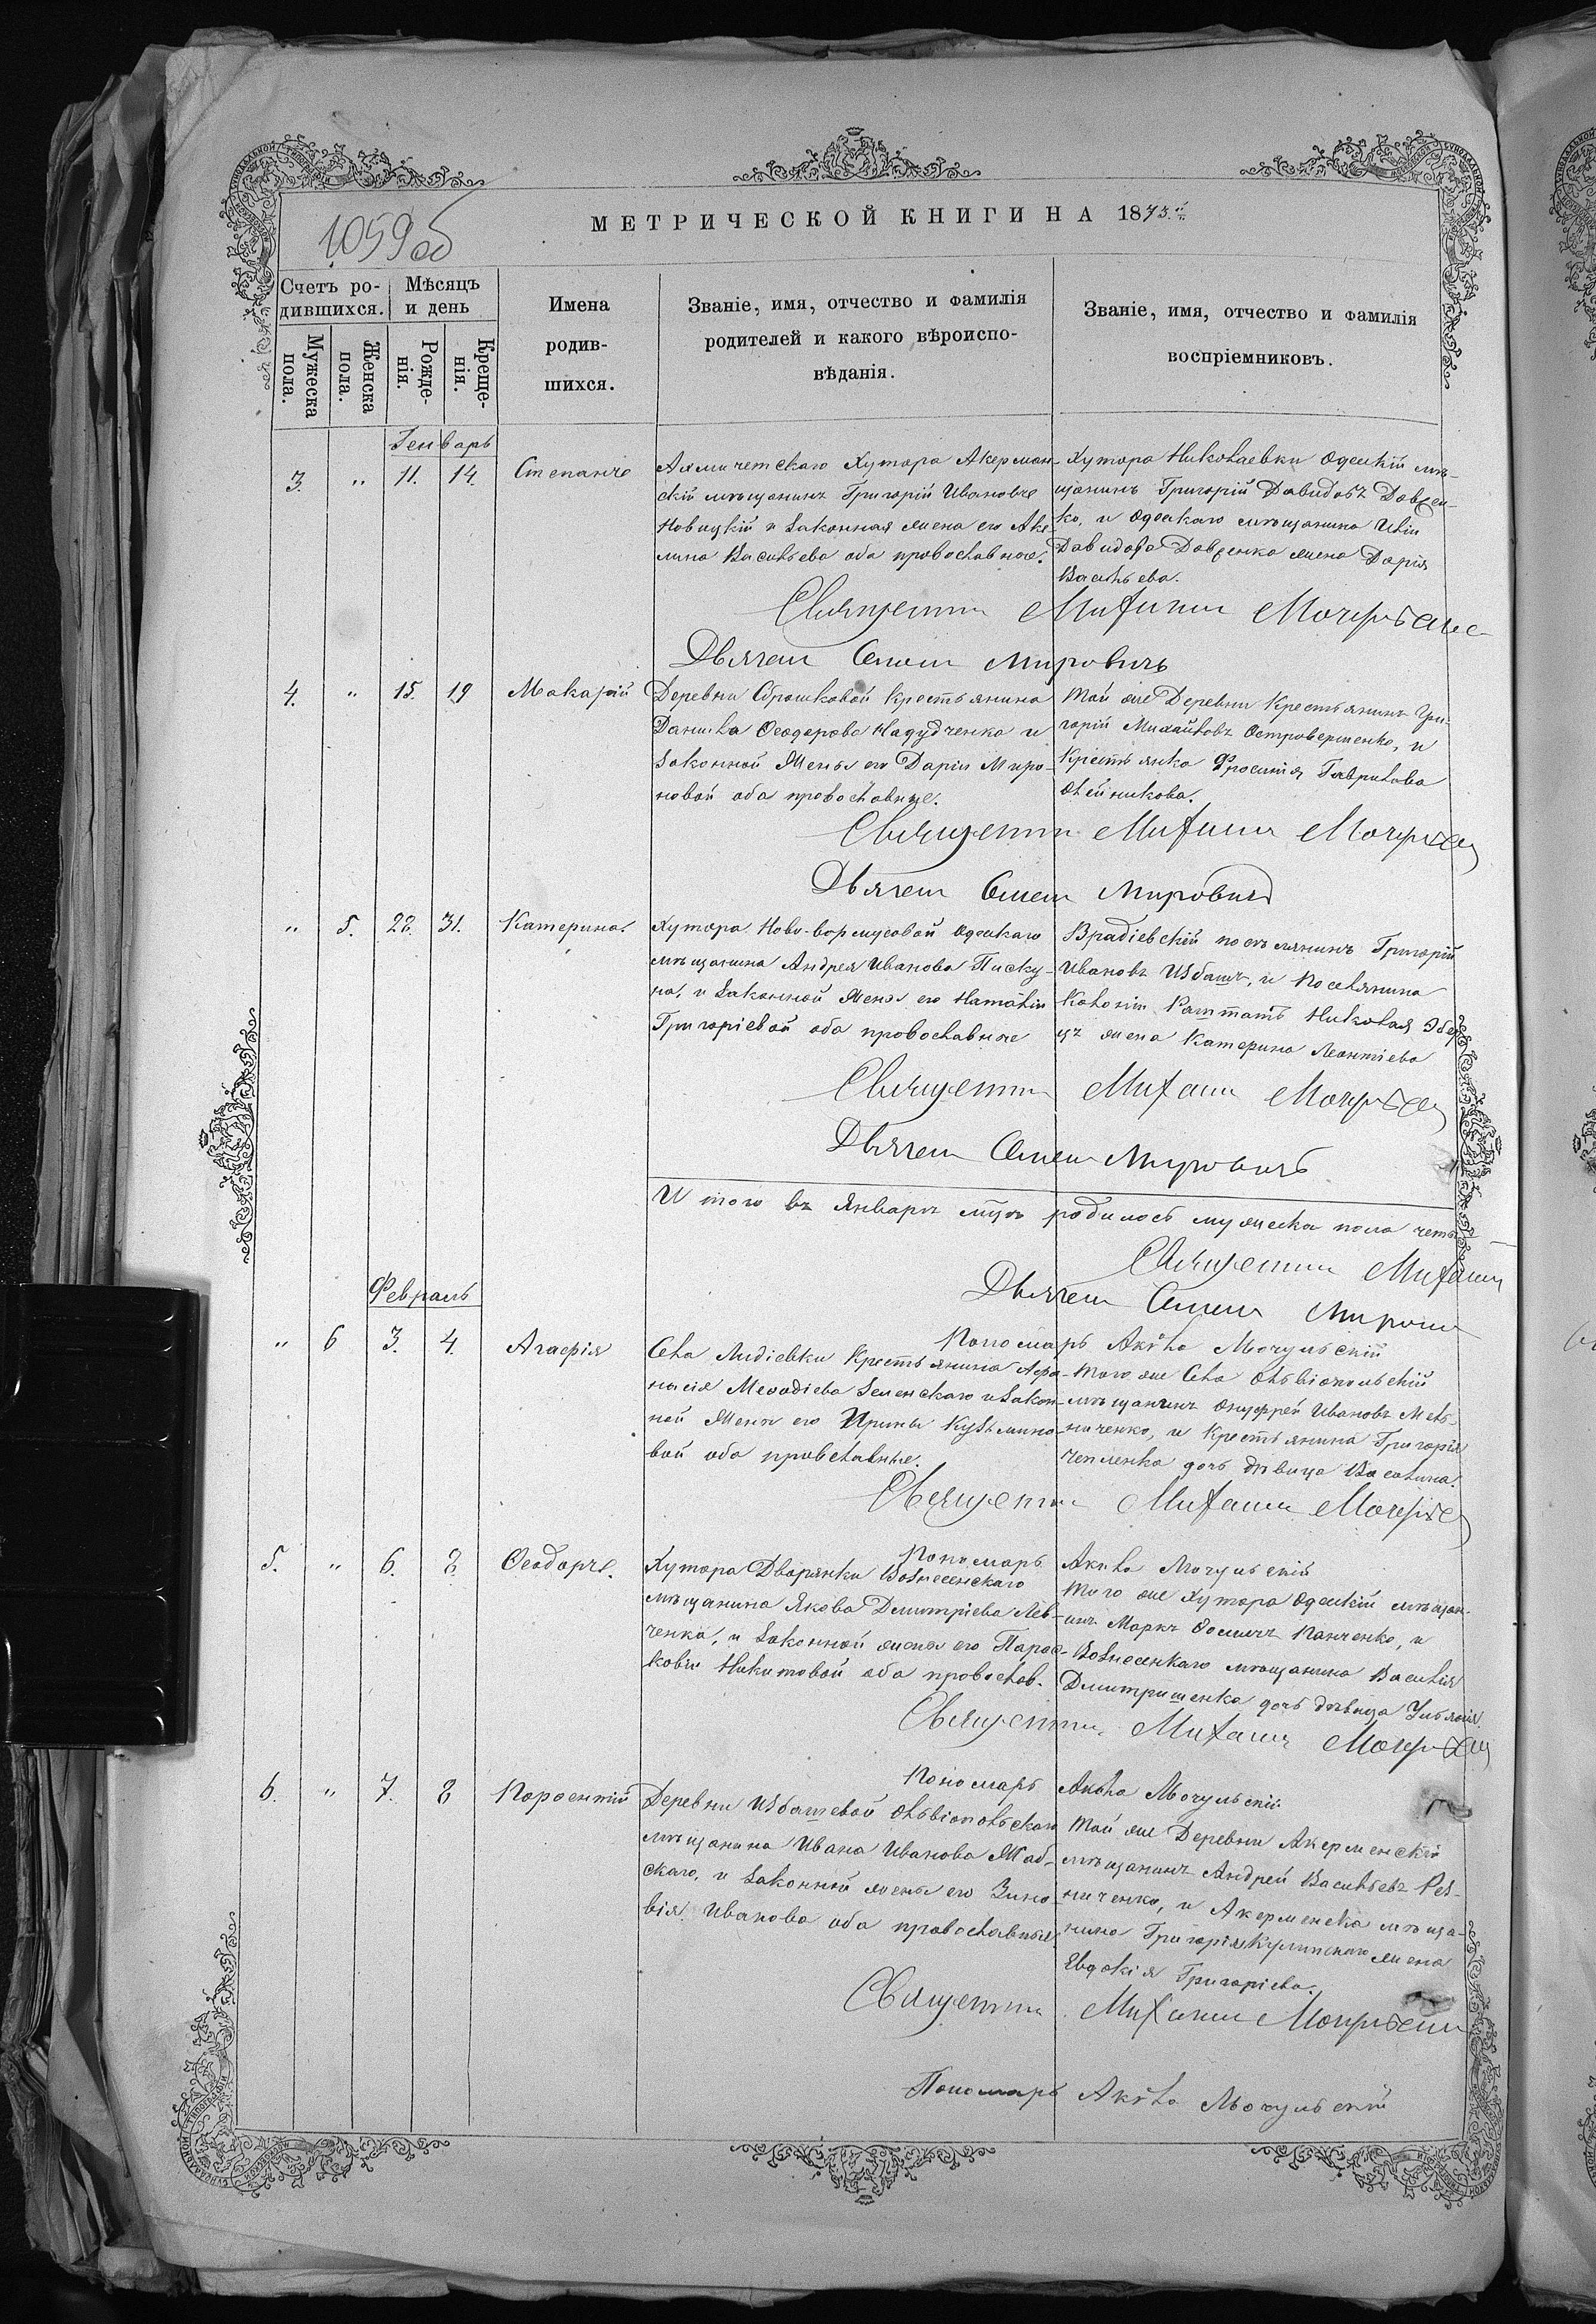 1059 об
МЕТРИЧЕСКОЙ КНИГИ НА 1873.
Счетъ ро-
дившихся.
Мужеска
пола.
Женска
пола.
Мѣсяцъ
и день
Рожде-
нія.
Креще-
нія.
Имена
родив-
шихся.
Званіе, имя, отчество и фамилія
родителей и какого вѣроиспо-
вѣданія.
Званіе, имя, отчество и фамилія
воспріемниковъ.
Генварь
3. " 11. 14. Степанъ
Акмичетскаго Хутора Акерман-
скій мѣщанинъ Григорій Ивановъ
Новицкій и Законная жена его Аке-
лина Васильева оба православные.
Хутора Николаевки Одескій мѣ-
щанинъ Григорій Давидовъ
ко, и Одескаго мѣщанина
Давидова жена Дарія
Васильева.
Священникъ Михаилъ
Дьячекъ Симеонъ Мировичъ
4. " 15. 19 Макарій
Деревни Крестьянина
Данила Ѳеодорова Надудченко и
Законной Жены его Даріи Миро-
новой оба православные.
Той же Деревни Крестьянинъ Гри-
горій Михайловъ Островершенко, и
Крестьянка Фросинія Гаврилова
Олейникова.
Священникъ Михаилъ
Дьячекъ Симеонъ Мировичъ
" 5. 28. 31. Катерина.
Хутора Одескаго
мѣщанина Андрея Иванова Писку-
на, и Законной Жены его Наталіи
Григоріевой оба православные
Врадіевскій поселянинъ Григорій
Ивановъ Избашъ, и Поселянина
Колоніи Раштатъ Николая
жена Катерина Леонтіева
Священникъ Михаилъ
Дьячекъ Симеонъ Мировичъ
Итого въ Январѣ родилось мужеска пола
Священникъ Михаилъ
Дьячекъ Симеонъ
Пономарь Акила Мочульскій
Февраль
" 6 3. 4. Агафія
Села Лидіевки Крестьянина Афа-
насія Меѳодіева Зеленскаго и Закон-
ной Жены его Ирины Кузьмино-
вой оба православные.
Того же Села Ольвіопольскій
мѣщанинъ Онуфрей Ивановъ Мель-
ниченко, и Крестьянина Григорія
дочь дѣвица Василина.
Священникъ Михаилъ
Пономарь Акила Мочульскій
5. " 6. 8. Ѳеодоръ.
Хутора Дворянки Вознесенскаго
мѣщанина Якова Димитріева Лев-
ченка, и Законной жены его Парас-
ковіи Никитовой оба православ.
Того же Хутора Одескій мѣщан-
инъ Маркъ Ѳоминъ Панченко, и
Вознесенкаго мѣщанина Василія
Дмитришенка дочь дѣвица Ульянія.
Священникъ Михаилъ
Пономарь Акила Мочульскій
6. " 7. 8
Деревни Избашевой Ольвіопольскаго
мѣщанина Ивана Иванова Жаб-
скаго, и Законной жены его Зино-
вія Иванова оба православные
Той же Деревни Акерменскій
мѣщанинъ Андрей Васильевъ Рез-
ниченко, и Акерменска мѣща-
нина Григорія жена
Явдокія Григоріева.
Священникъ Михаилъ
Пономарь Акила Мочульскій